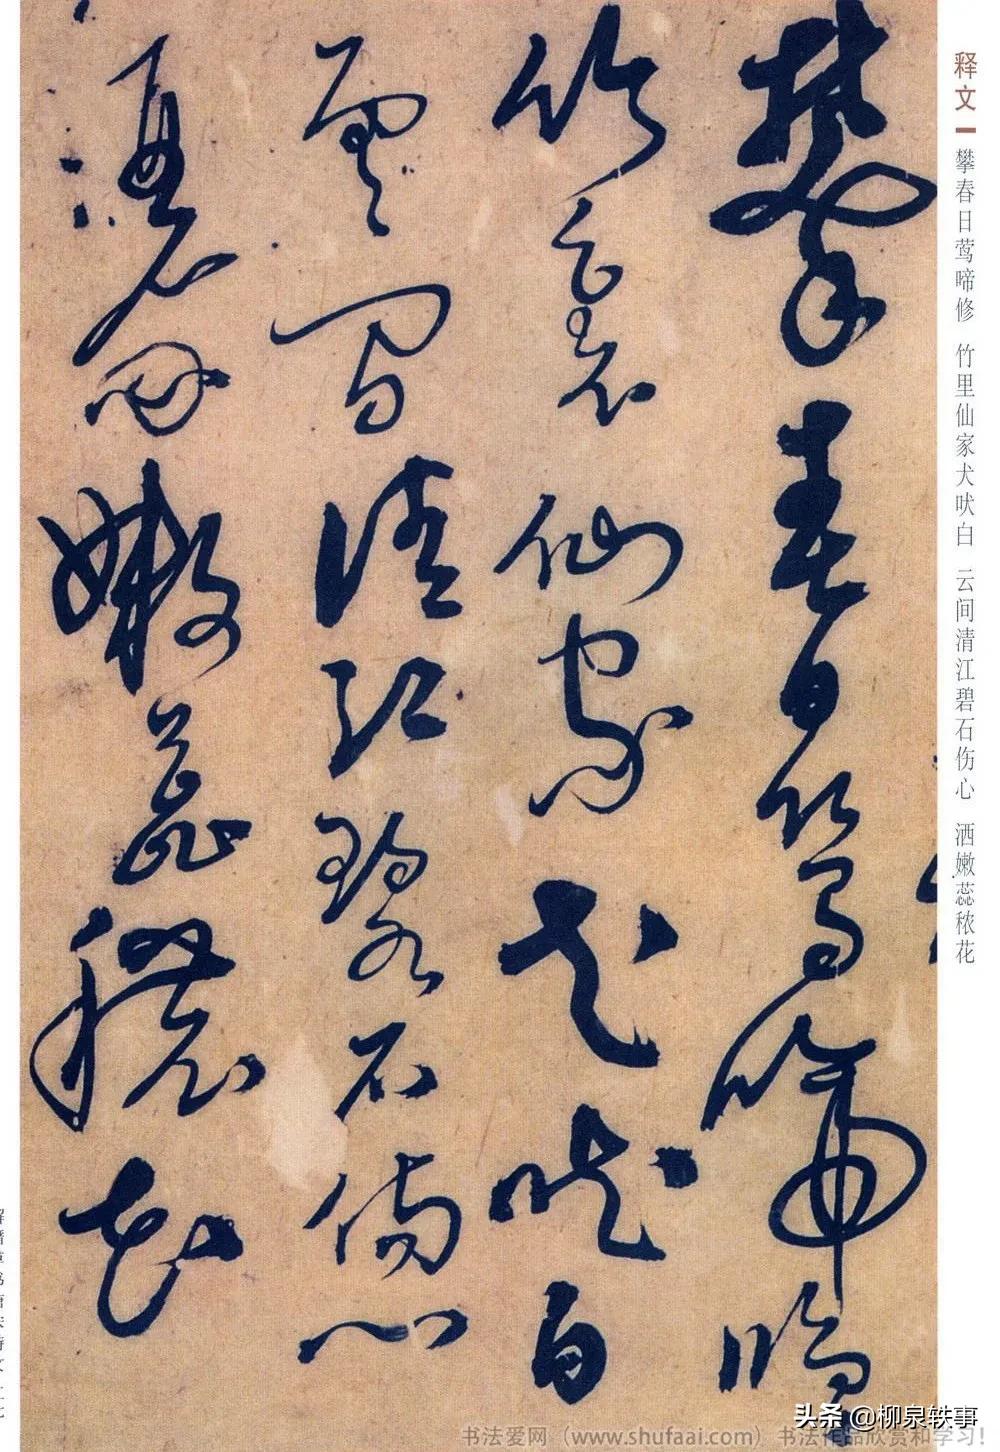 释文 攀春日莺啼修 竹里仙家犬吠白 云间清江碧石伤心 洒嫩蕊秾花
攀春日鶯啼脩
竹裏仙家犬吠白
雲間清江碧石傷心
灑嫩蕊穠花
头条 @柳泉轶事
书法爱网（www.shufaai.com）书法作品欣赏和学习!